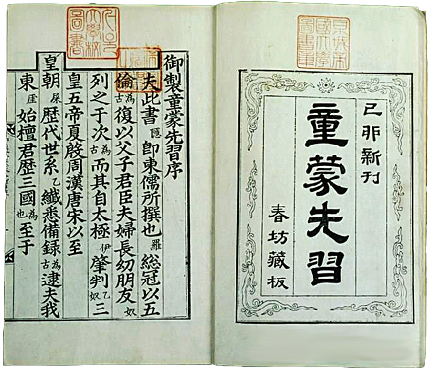 己卯新刊
童蒙先習
春坊藏板
御製童蒙先習序
夫此書隱即東儒所撰也羅総冠以五
倫為古復以父子君臣夫婦長幼朋友奴
列之于次為古而其自太極伊肇判乙奴三
皇五帝夏殷周漢唐宋以至
皇朝屎歷代世系乙纎悉備録為古逮夫我
東厓始檀君歷三國為也至于